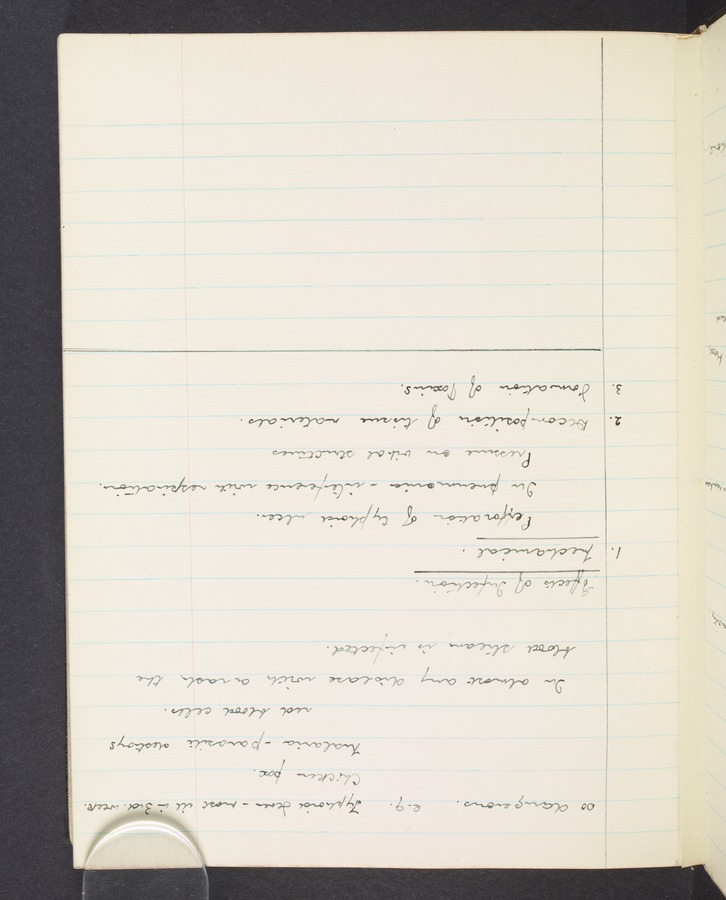 so dangerous. e.g. Typhoid fever - most ill in 3rd week.
Chicken pox.
Malaria - parasite destroys
red blood cells.
In almost any disease with a rash, the
blood stream is infected.
Effects of Infection.
1. Mechanical.
Perforation of typhoid ulcer.
In pneumonia - interference with respiration.
Pressure on vital structures
2. Decomposition of tissue materials.
3. Formation of Toxins.